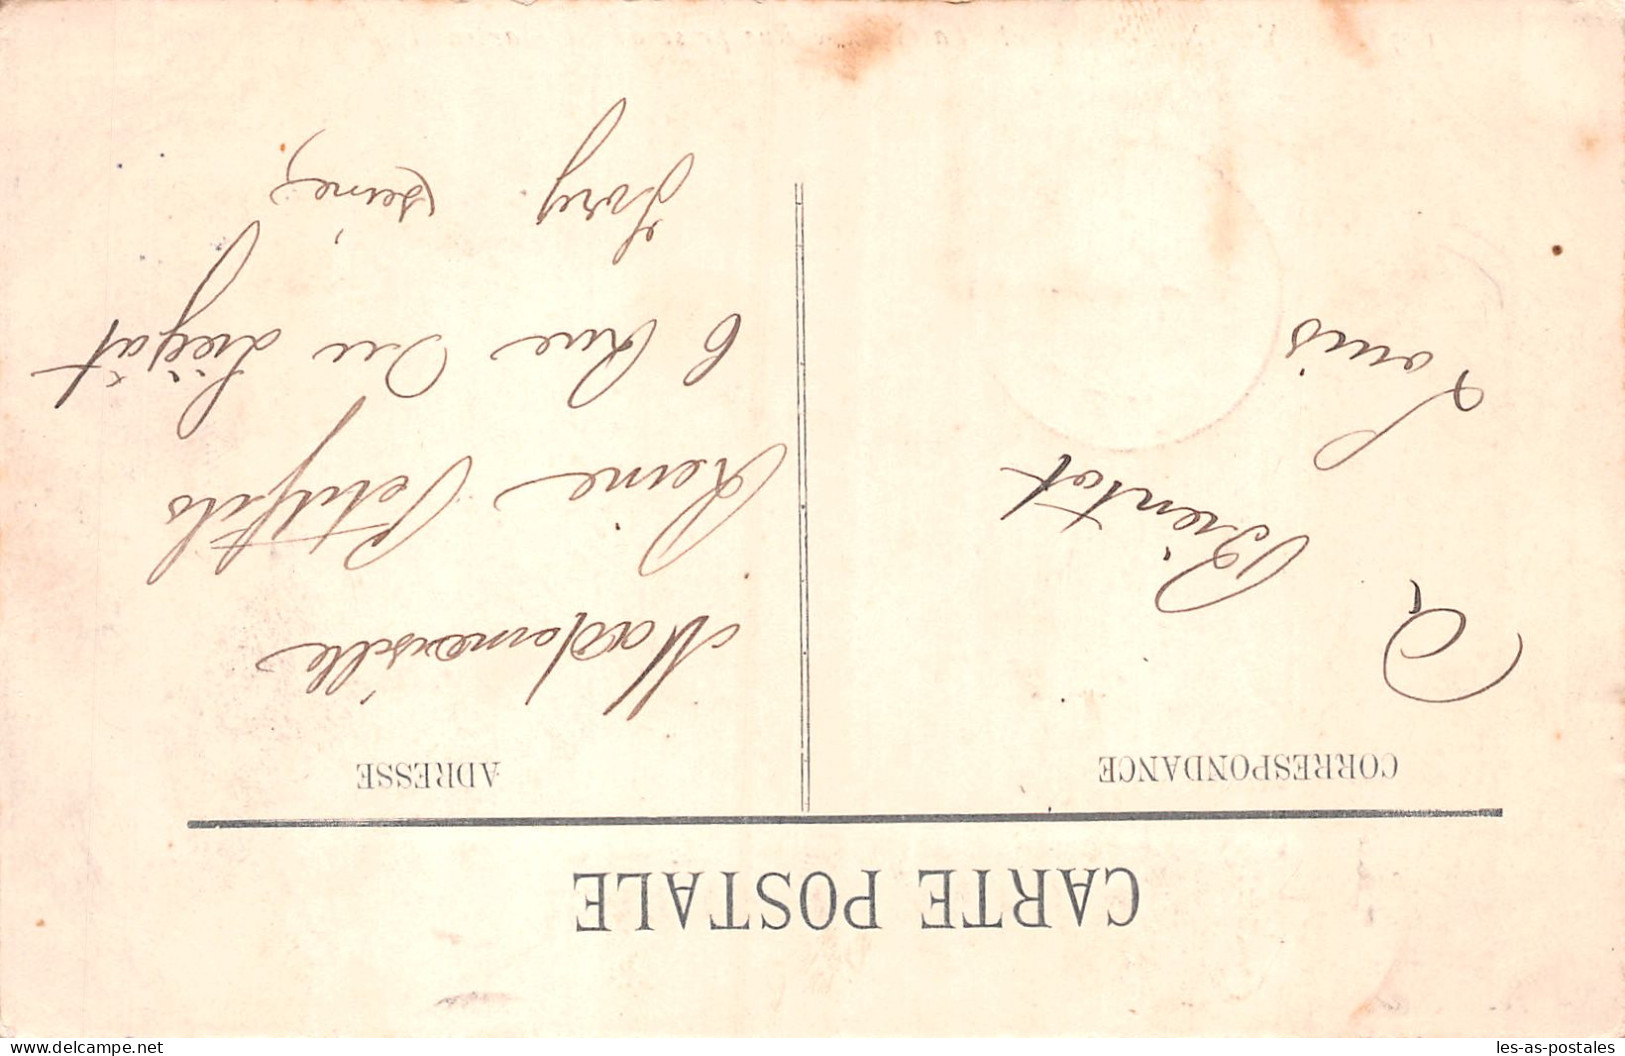 CARTE POSTALE
CORRESPONDANCE
A
Bientot
Louis
ADRESSE
Mademoiselle
Reine Petitfils
6 Rue Du Liégat
Ivry (Seine)
www.delcampe.net
les-as-postales